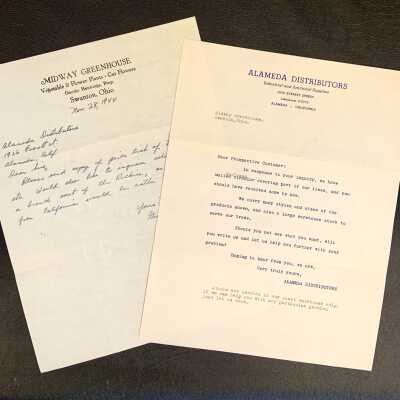 MIDWAY GREENHOUSE
Vegetable & Flower Plants - Cut Flowers
Swanton, Ohio
Nov. 28, 1944
Alameda Distributors
Alameda, Calif.
Dear Sirs,
Please send copy of price list of
Would also like to inquire
a branch east of the
from California would be rather
Yours
ALAMEDA DISTRIBUTORS
ALAMEDA - CALIFORNIA
Midway Greenhouse,
Swanton, Ohio.
Dear Prospective Customer:
In response to your inquiry, we have
mailed brochure covering part of our lines, and you
should have received same by now.
We carry many styles and sizes of the
products shown, and also a large warehouse stock to
serve our trade.
Should you not see what you want, will
you write us and let us help you further with your
problem?
Hoping to hear from you, we are,
Very truly yours,
ALAMEDA DISTRIBUTORS
if we can help you with any particular problem,
just let us know.